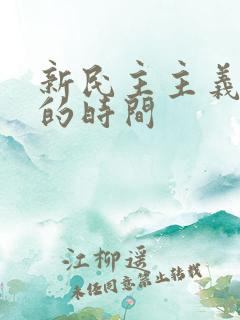 新民主主義
的時間
江柳遥
未任同意禁止转载